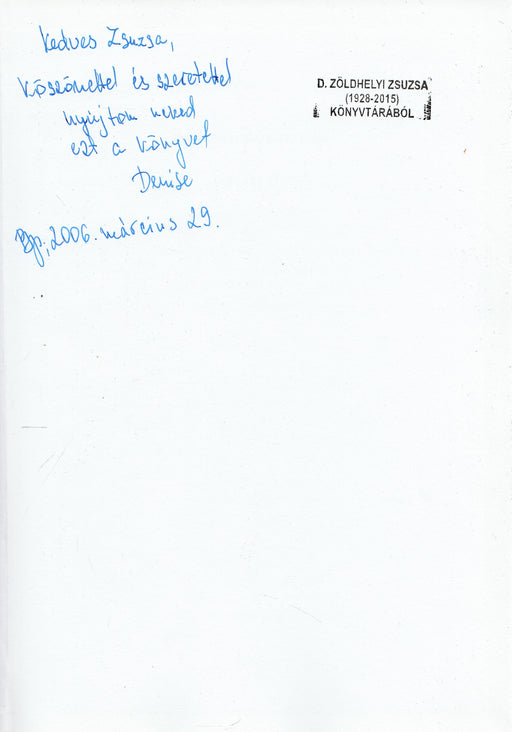 Kedves Zsuzsa,
Köszönettel és szeretettel
nyújtom neked
ezt a könyvet
Denise
Bp, 2006. március 29.
D. ZÖLDHELYI ZSUZSA
(1928-2015)
KÖNYVTÁRÁBÓL